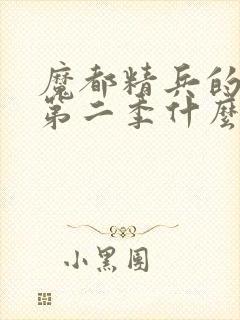 魔都精兵的
第二季什麼
小黑團